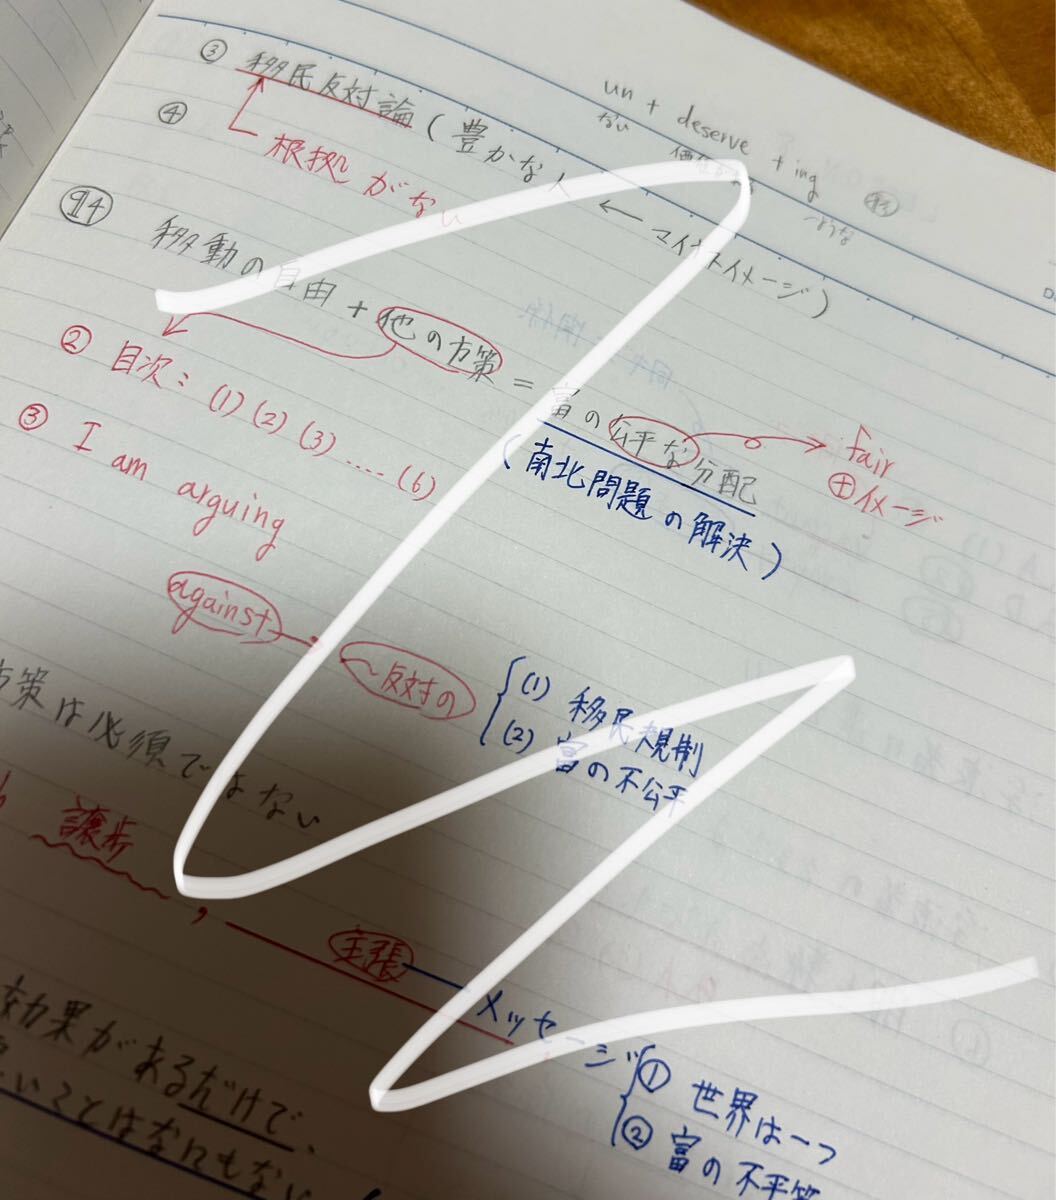 un + deserve + ing
ない
ような
③ 移民反対論 (豊かな人 ← マイナスイメージ)
④ 根拠がない
¶4
移動の自由 + 他の方策 = 富の公平な分配
fair
⊕イメージ
(南北問題の解決)
② 目次: (1) (2) (3) .... (6)
③ I am arguing
against
〜反対の
(1) 移民規制
(2) 富の不公平
方策は必須ではない
譲歩 ,
主張 メッセージ
① 世界は一つ
② 富の不平等
効果があるだけで、
いことはなにもない